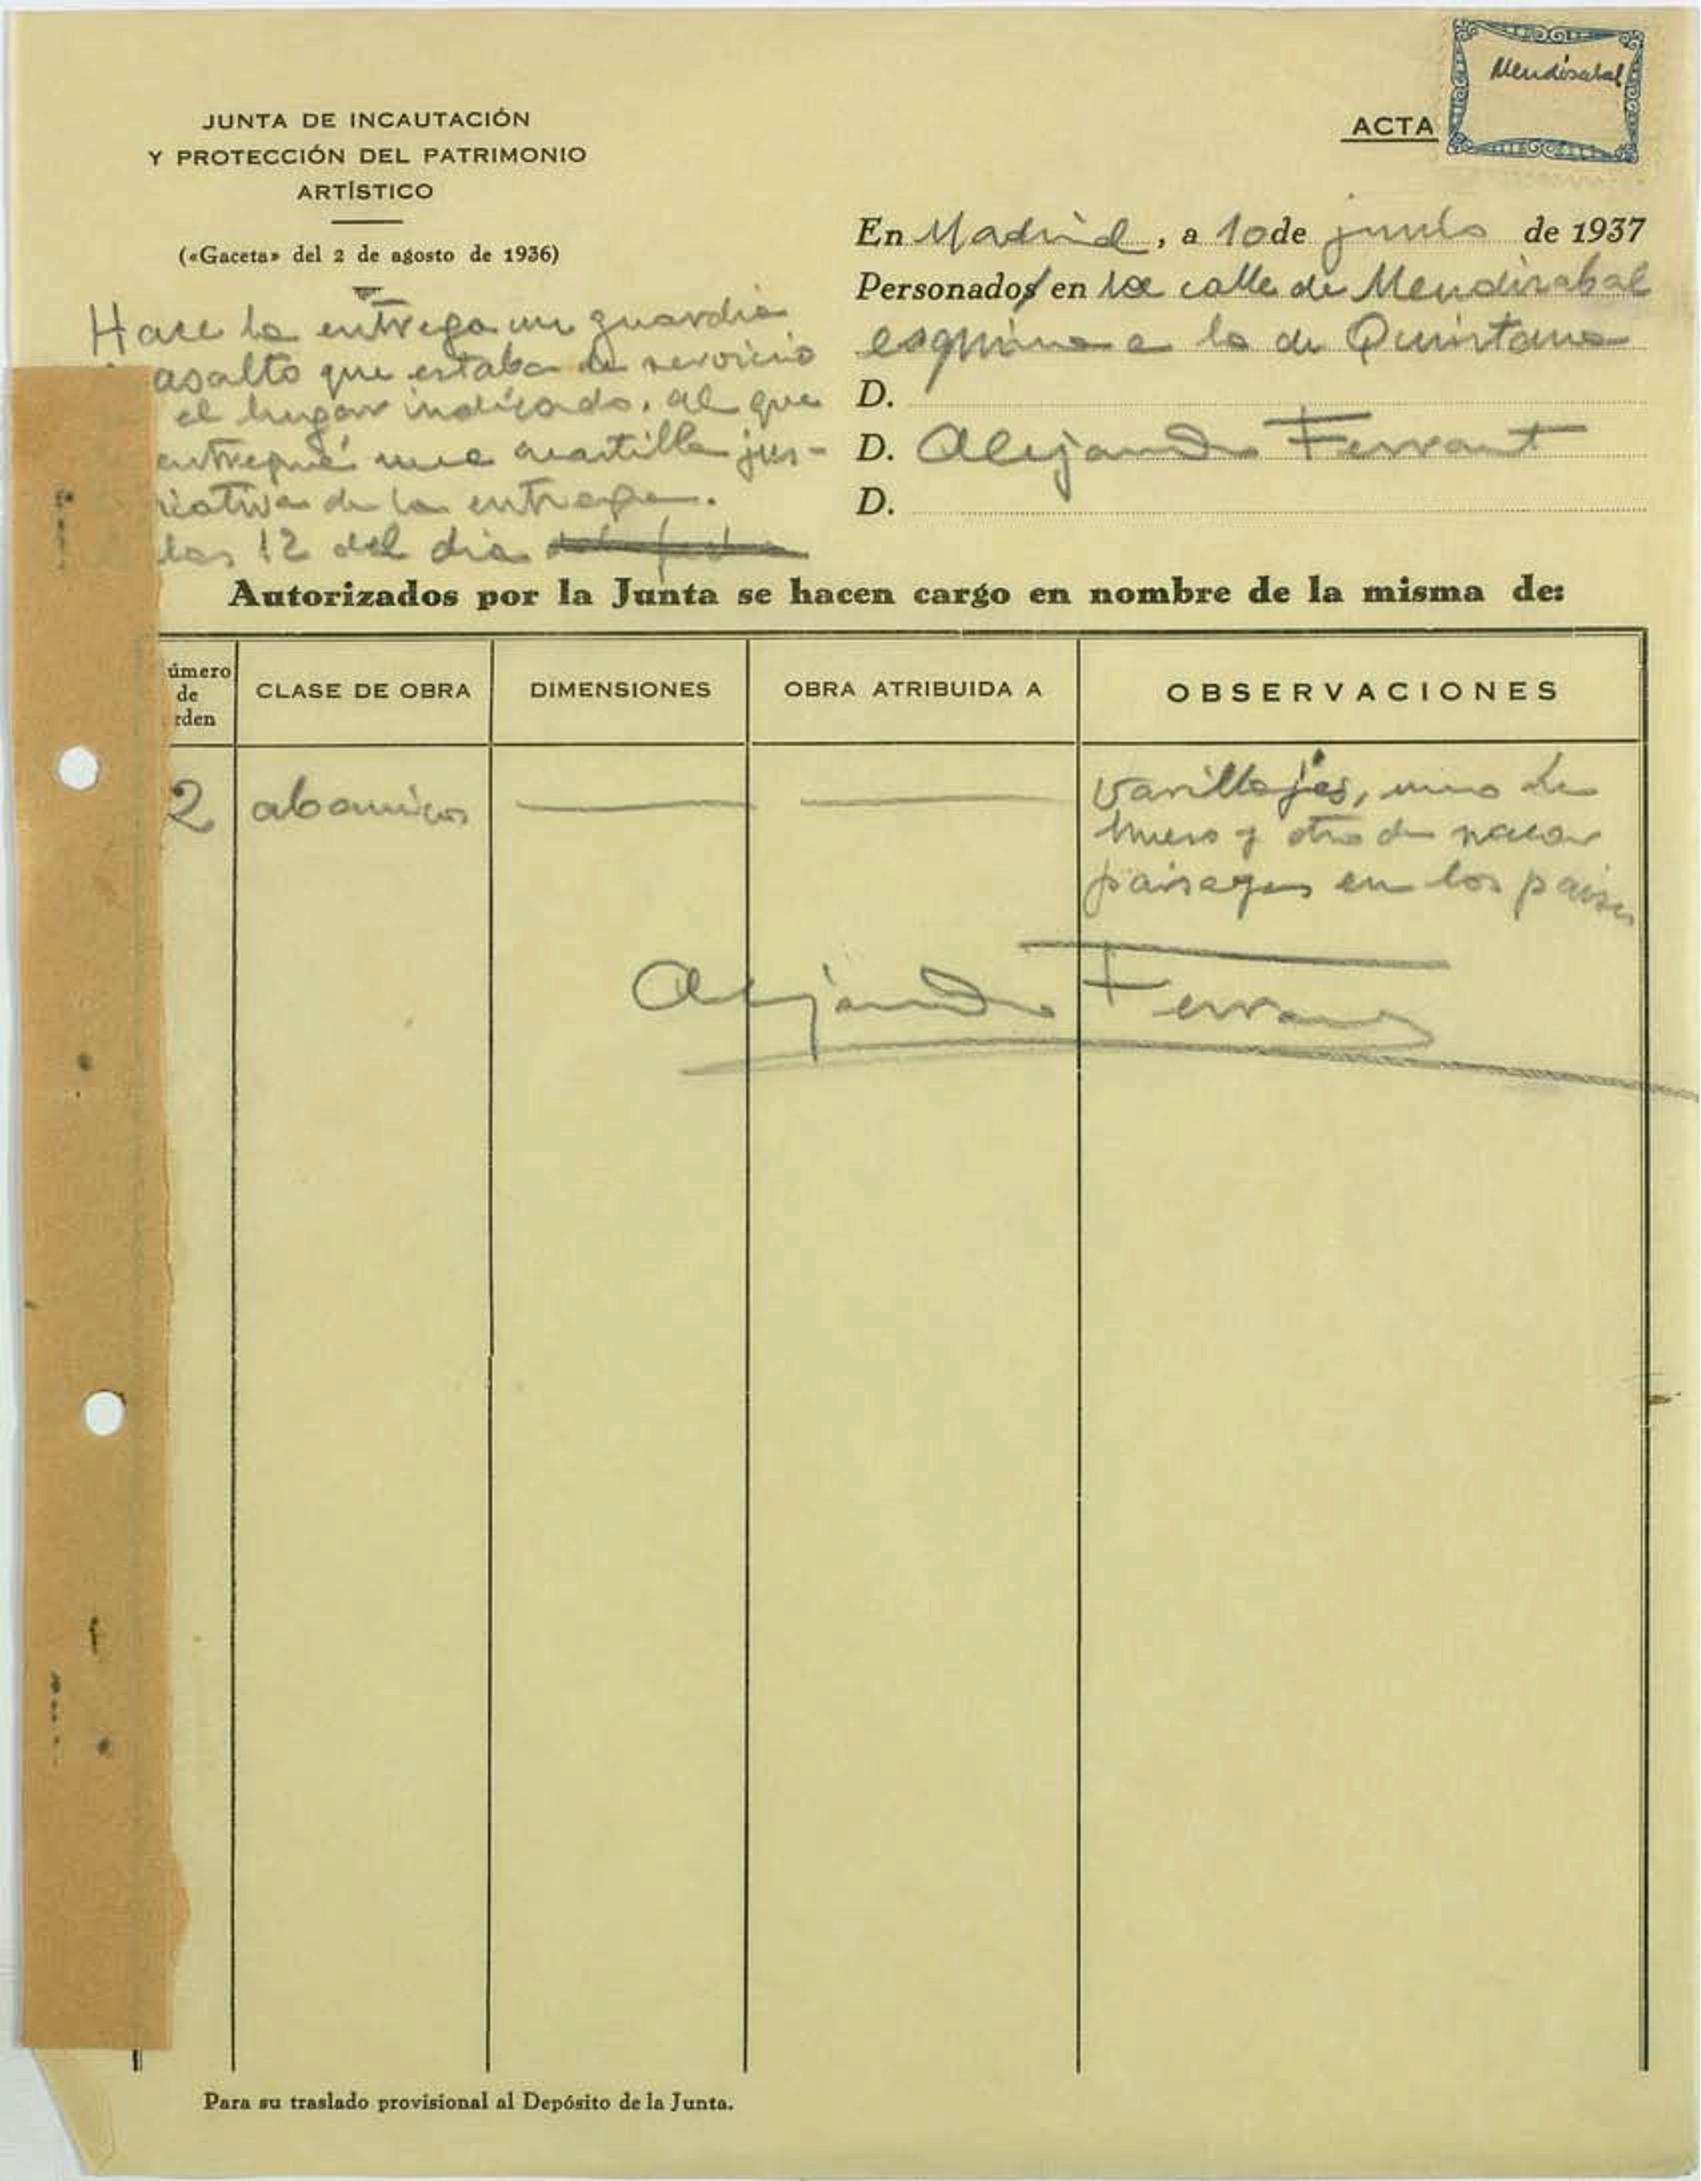 Mendizabal
ACTA
JUNTA DE INCAUTACIÓN
Y PROTECCIÓN DEL PATRIMONIO
ARTÍSTICO
(«Gaceta» del 2 de agosto de 1936)
En Madrid, a 10 de junio de 1937
Personados en la calle de Mendizabal
esquina a la de Quintana
D.
D. Alejandro Ferrant
D.
Hace la entrega un guardia
asalto que estaba de servicio
el lugar indicado, al que
entregué una cuartilla jus-
de la entrega.
las 12 del dia
Autorizados por la Junta se hacen cargo en nombre de la misma de:
úmero
de
rden
CLASE DE OBRA
DIMENSIONES
OBRA ATRIBUIDA A
OBSERVACIONES
2
abanicos
varillajes, uno de
hueso y otro de nacar
paisages en los paises
Alejandro Ferrant
Para su traslado provisional al Depósito de la Junta.